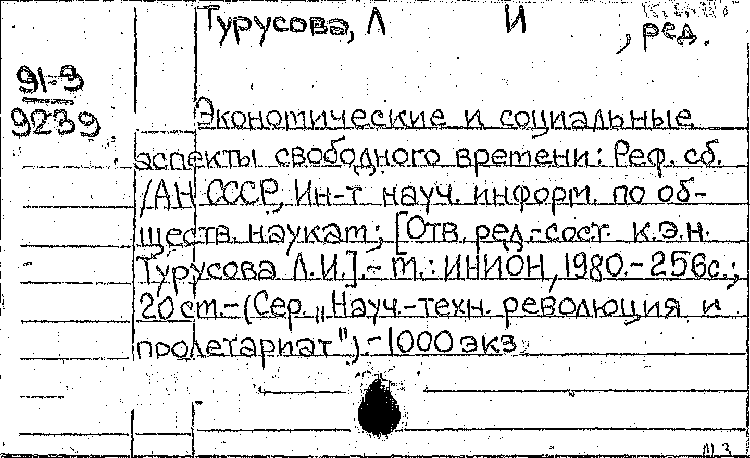 Турусова, Л И
, ред.
91-3
9239
Экономические и социальные
аспекты свободного времени: Реф. сб.
/АН СССР, Ин-т науч. информ. по об-
ществ. наукам; [Отв. ред.-сост. к.э.н.
Турусова Л.И.].- м.: ИНИОН, 1980.- 256с.;
20 см.-(Сер. „Науч.-техн. революция и
пролетариат").-1000 экз.